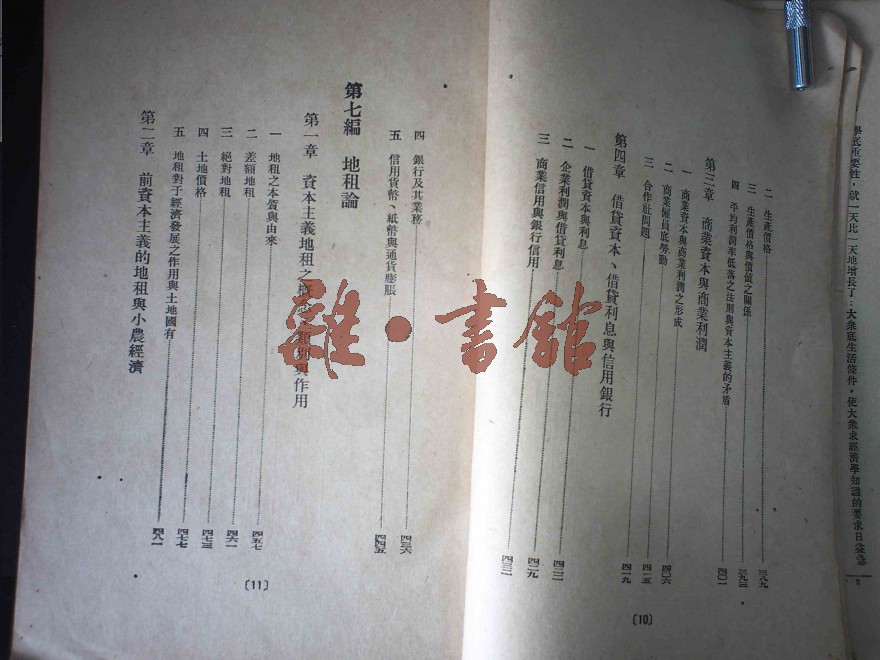 學底重要性，就一天比一天地增長了；大衆底生活條件，使大衆求經濟學知識的要求日益急
二 生產價格……三八九
三 生產價格與價值之關係……三九三
四 平均利潤率低落之法則與資本主義的矛盾……四〇一
第三章 商業資本與商業利潤
一 商業資本與商業利潤之形成……四〇六
二 商業僱員底勞動……四一五
三 合作社問題……四一九
第四章 借貸資本、借貸利息與信用銀行
一 借貸資本與利息……四二二
二 企業利潤與借貸利息……四二九
三 商業信用與銀行信用……四三二
〔10〕
四 銀行及其業務……四三六
五 信用貨幣、紙幣與通貨膨脹……四四五
第七編 地租論
第一章 資本主義地租之概念、類別與作用
一 地租之本質與由來……四五七
二 差額地租……四六一
三 絕對地租……四七三
四 土地價格……四七七
五 地租對于經濟發展之作用與土地國有……四八一
第二章 前資本主義的地租與小農經濟
〔11〕
雜·書館